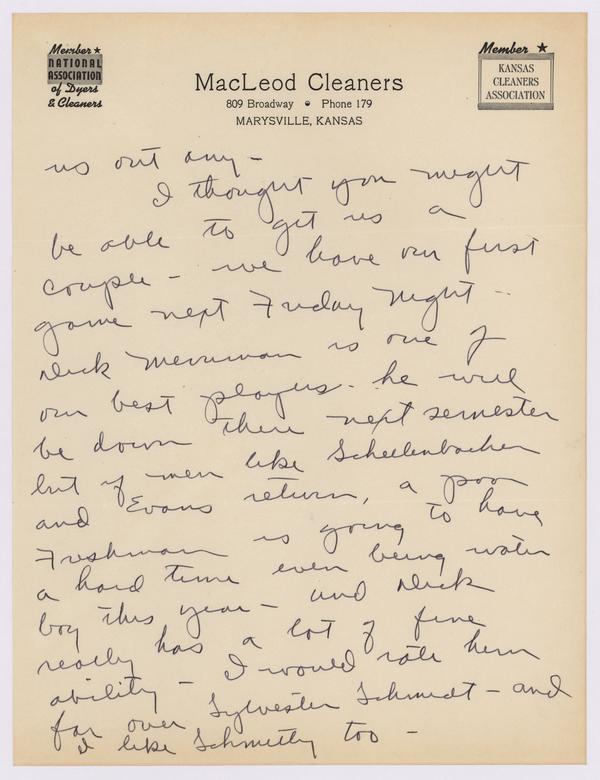 Member ★
NATIONAL
ASSOCIATION
of Dyers
& Cleaners
MacLeod Cleaners
809 Broadway • Phone 179
MARYSVILLE, KANSAS
Member ★
KANSAS
CLEANERS
ASSOCIATION
us out any –
I thought you might
be able to get us a
couple – we have our first
game next Friday Night –
Dick Merriman is one of
our best players. he will
be down there next semester
but if men like Schellenbacher
and Evans return, a poor
Freshman is going to have
a hard time even being water
boy this year – and Dick
really has a lot of fine
ability – I would rate him
far over Sylvester Schmidt – and
I like Schmitty too –